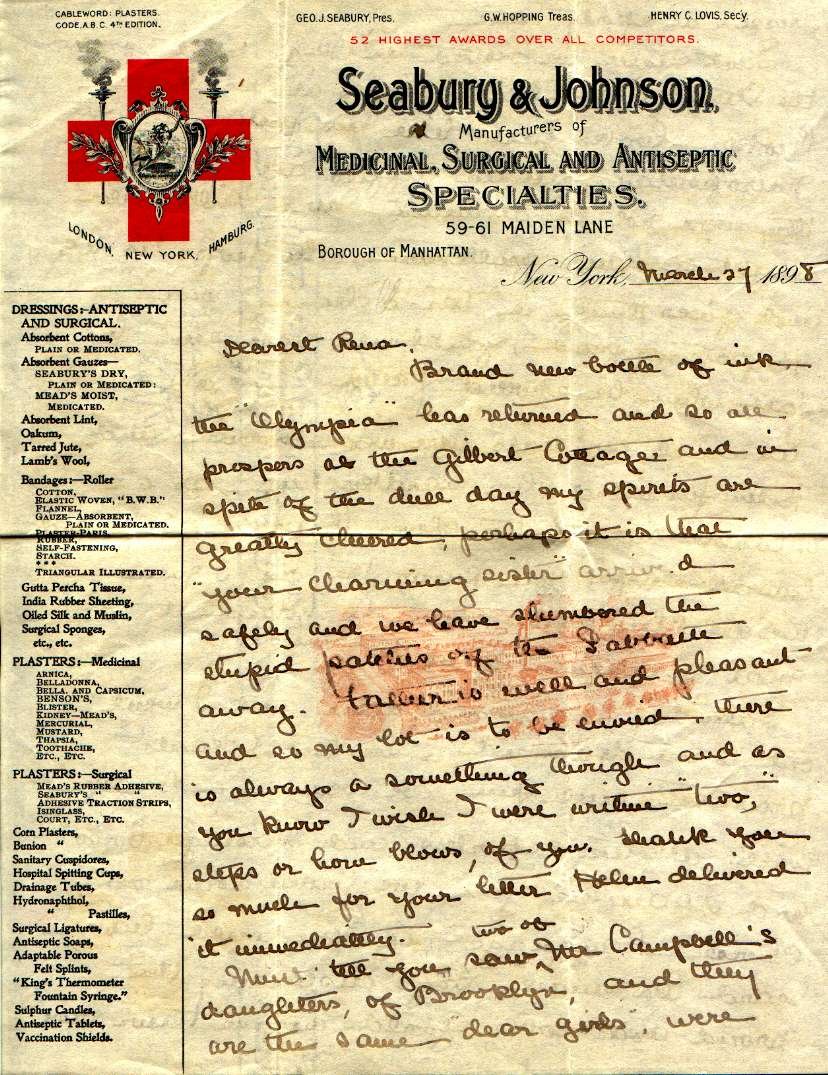 CABLEWORD: PLASTERS.
CODE. A.B.C. 4TH EDITION.
GEO. J. SEABURY, Pres. G.W. HOPPING Treas. HENRY C. LOVIS, Sec'y.
52 HIGHEST AWARDS OVER ALL COMPETITORS.
Seabury & Johnson,
Manufacturers of
MEDICINAL, SURGICAL AND ANTISEPTIC
SPECIALTIES.
59-61 MAIDEN LANE
BOROUGH OF MANHATTAN.
LONDON, NEW YORK, HAMBURG.
New York, March 27 1898
DRESSINGS:-ANTISEPTIC
AND SURGICAL.
Absorbent Cottons,
PLAIN OR MEDICATED.
Absorbent Gauzes—
SEABURY'S DRY,
PLAIN OR MEDICATED:
MEAD'S MOIST,
MEDICATED.
Absorbent Lint,
Oakum,
Tarred Jute,
Lamb's Wool,
Bandages:—Roller
COTTON,
ELASTIC WOVEN, "B.W.B."
FLANNEL,
GAUZE—ABSORBENT,
PLAIN OR MEDICATED.
PLASTER-PARIS,
RUBBER,
SELF-FASTENING,
STARCH.
***
TRIANGULAR ILLUSTRATED.
Gutta Percha Tissue,
India Rubber Sheeting,
Oiled Silk and Muslin,
Surgical Sponges,
etc., etc.
PLASTERS:—Medicinal
ARNICA,
BELLADONNA,
BELLA. AND CAPSICUM,
BENSON'S,
BLISTER,
KIDNEY—MEAD'S,
MERCURIAL,
MUSTARD,
THAPSIA,
TOOTHACHE,
ETC., ETC.
PLASTERS:—Surgical
MEAD'S RUBBER ADHESIVE,
SEABURY'S " "
ADHESIVE TRACTION STRIPS,
ISINGLASS,
COURT, ETC., ETC.
Corn Plasters,
Bunion "
Sanitary Cuspidores,
Hospital Spitting Cups,
Drainage Tubes,
Hydronaphthol,
" Pastilles,
Surgical Ligatures,
Antiseptic Soaps,
Adaptable Porous
Felt Splints,
"King's Thermometer
Fountain Syringe."
Sulphur Candles,
Antiseptic Tablets,
Vaccination Shields.
Dearest Rena,
Brand new bottle of ink,
the "Olympia" has returned and so all
prospers at the Gilbert Cottage and in
spite of the dull day my spirits are
greatly cheered, perhaps it is that
"your charming sister" arrived
safely and we have slumbered the
stupid patches of the Sabbath
away. Father is well and pleasant
and so my lot is to be envied, there
is always a something though and as
you know I wish I were writing "two,"
steps or horn blows, of you. Thank you
so much for your letter Helen delivered
it immediately.
Now tell you saw two of Mr Campbell's
daughters, of Brooklyn, and they
are the same "dear girls", were